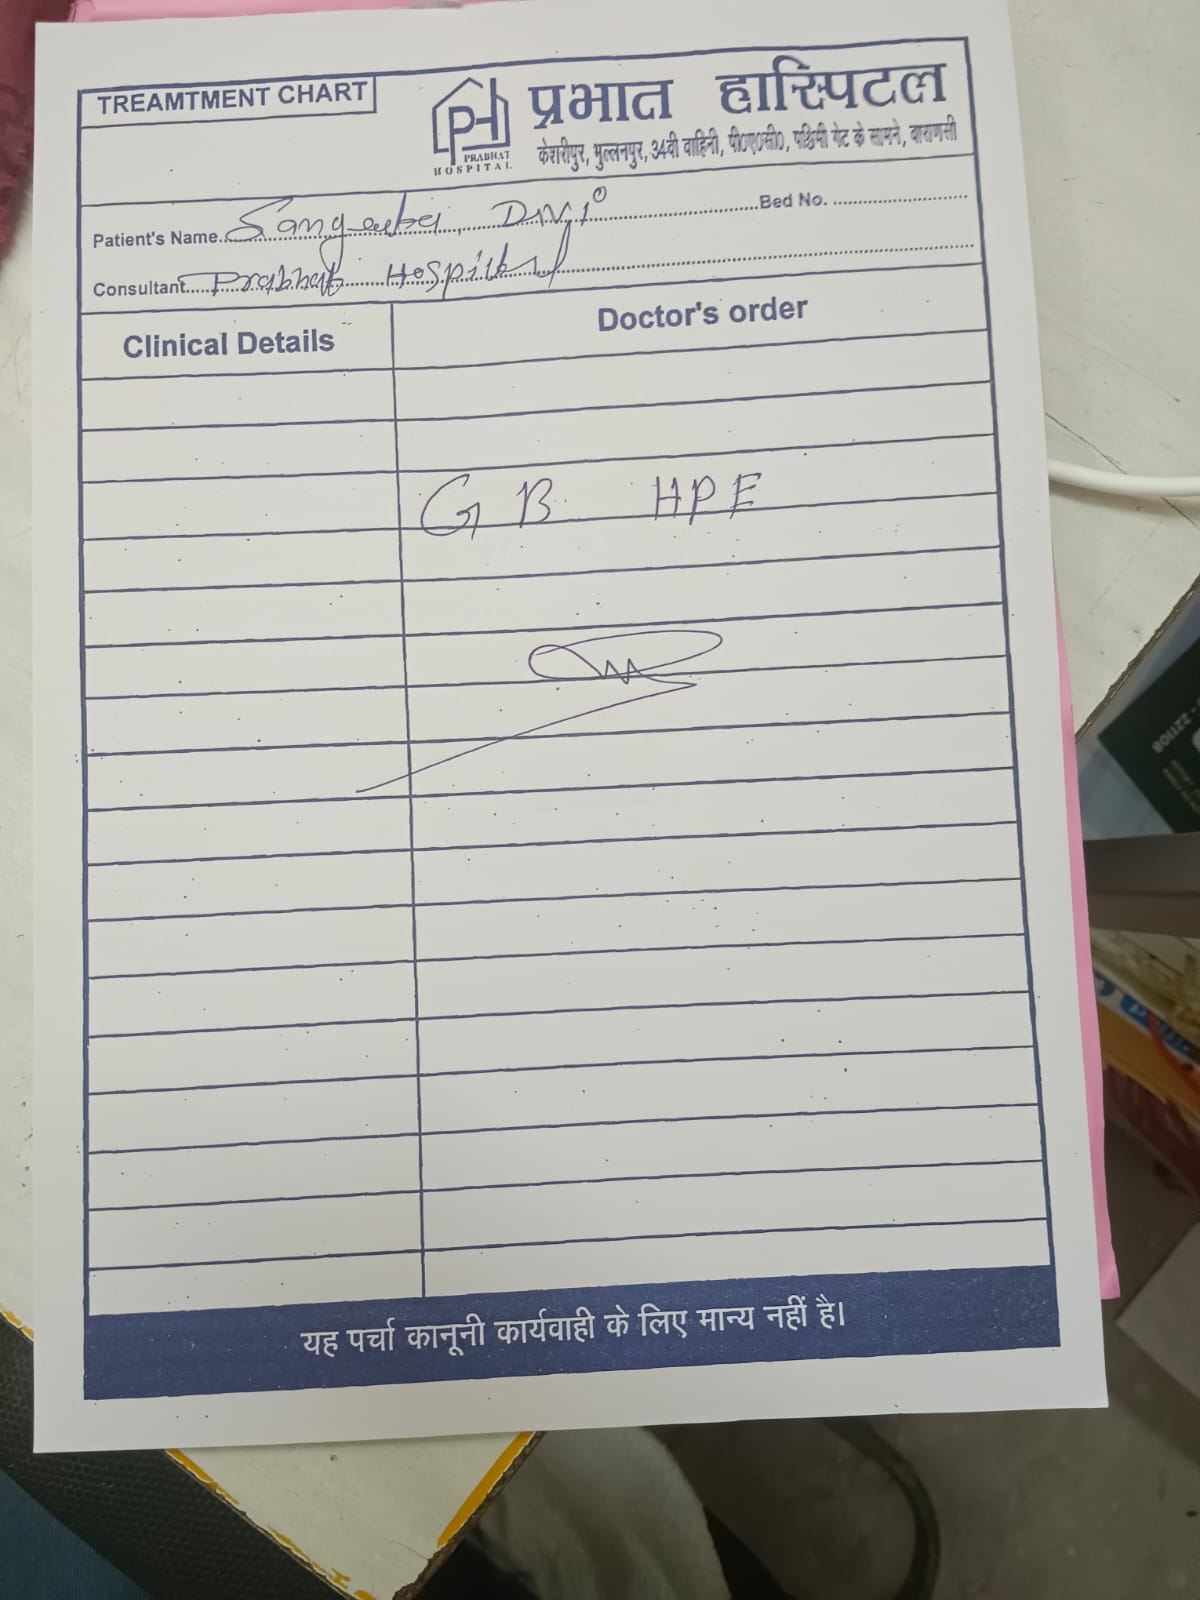 TREAMTMENT CHART
PH PRABHAT HOSPITAL
प्रभात हास्पिटल
केशरीपुर, भुल्लनपुर, 34वी वाहिनी, पी0ए0सी0, पश्चिमी गेट के सामने, वाराणसी
Patient's Name Sangeeta Devi Bed No.
Consultant Prabhat Hospital
Clinical Details Doctor's order
G B HPE
यह पर्चा कानूनी कार्यवाही के लिए मान्य नहीं है।
221108